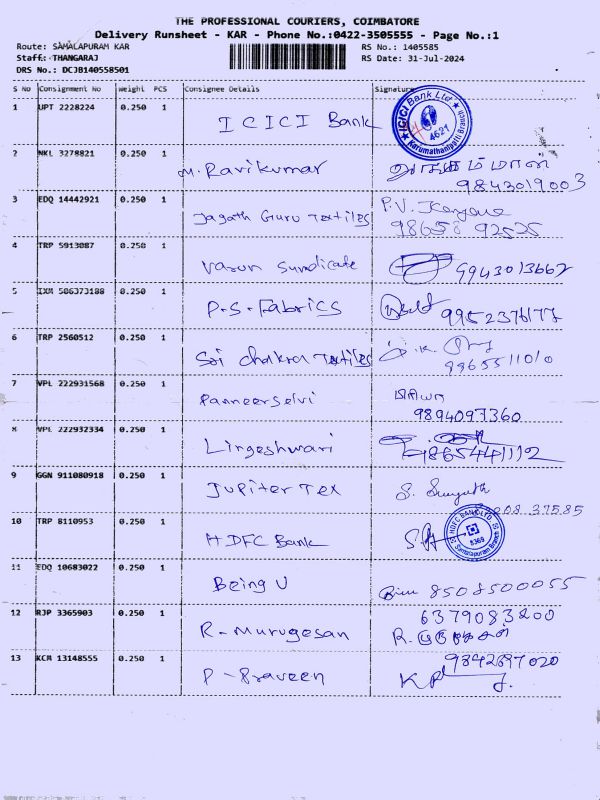 THE PROFESSIONAL COURIERS, COIMBATORE
Delivery Runsheet - KAR - Phone No.:0422-3505555 - Page No.:1
Route: SAMALAPURAM KAR RS No.: 1405585
Staff: THANGARAJ RS Date: 31-Jul-2024
DRS No.: DCJB140558501
S No Consignment No Weight PCS Consignee Details Signature
1 UPT 2228224 0.250 1 ICICI Bank
ICICI Bank Ltd 4621 Karumathampatti Branch
2 NKL 3278821 0.250 1 M. Ravikumar
9843019003
3 EDQ 14442921 0.250 1 Jagath Guru Textiles P.V.
98658 92525
4 TRP 5913087 0.250 1 Varun Syndicate 9943013662
5 IXM 506373188 0.250 1 P.S. Fabrics 9952376177
6 TRP 2560512 0.250 1 Sri chakra Textiles
9865511010
7 VPL 222931568 0.250 1 Panneerselvi பிரியா
9894097360
8 VPL 222932334 0.250 1 Lingeshwari 9865441112
9 GGN 911080918 0.250 1 Jupiter Tex S.
37585
10 TRP 8110953 0.250 1 HDFC Bank
HDFC BANK LTD. 5369 Samalapuram Branch
11 EDQ 10683022 0.250 1 Being U 8508500055
12 RJP 3365903 0.250 1 R. Murugesan 6379083200
R. முருகேசன்
13 KCM 13148555 0.250 1 P. Praveen 9842697020